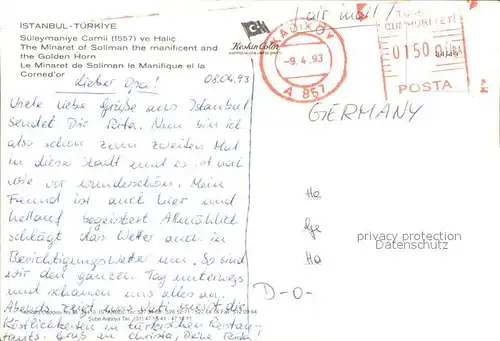 İSTANBUL-TÜRKİYE
Süleymaniye Camii (1557) ve Haliç
The Minaret of Soliman the manificent and
the Golden Horn
Le Minaret de Soliman le Manifique el la
Corned'or
Keskin Color
(air mail)
KADIKÖY
-9.4.93
A 857
TÜRK
CUMHURİYETİ
0150
POSTA
Lieber Opa! 08.04.93
Viele liebe Grüße aus Istanbul
sendet Dir Rita. Nun bin ich
also schon zum zweiten Mal
in dieser Stadt und es ist nach
wie vor wunderschön. Mein
Freund ist auch hier und
hellauf begeistert. Allmählich
schlägt das Wetter auch in
Besichtigungswetter um. So sind
wir den ganzen Tag unterwegs
und schauen uns alles an.
Abends zeigt uns die
Köstlichkeiten in türkischen Restau-
rants. Gruß an Christa, Deine Rita
GERMANY
He
Ha
D-0-
privacy protection
Datenschutz